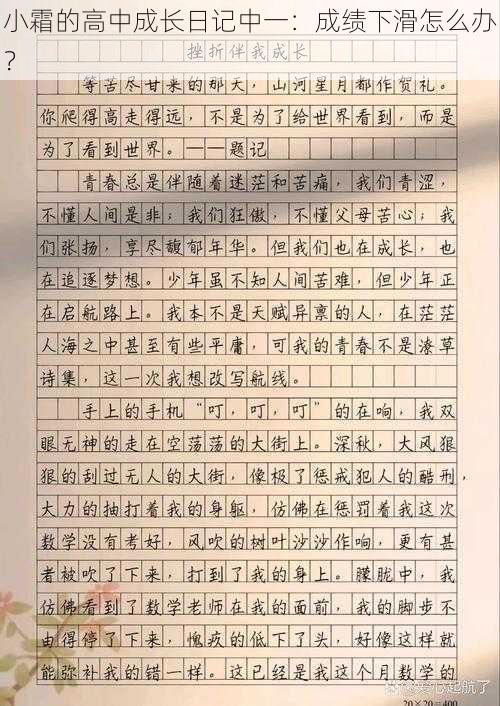 小霜的高中成长日记中一：成绩下滑怎么办
?
挫折伴我成长
等苦尽甘来的那天，山河星月都作贺礼。
你爬得高走得远，不是为了给世界看到，而是
为了看到世界。——题记
青春总是伴随着迷茫和苦痛，我们青涩，
不懂人间是非；我们狂傲，不懂父母苦心；我
们张扬，享尽馥郁年华。但我们也在成长，也
在追逐梦想。少年虽不知人间苦难，但少年正
在启航路上。我本不是天赋异禀的人，在茫茫
人海之中甚至有些平庸，可我的青春不是潦草
诗集，这一次我想改写航线。
手上的手机“叮，叮，叮”的在响，我双
眼无神的走在空荡荡的大街上。深秋，大风狠
狠的刮过无人的大街，像极了惩戒犯人的酷刑，
大力的抽打着我的身躯，仿佛在惩罚着我这次
数学没有考好，风吹的树叶沙沙作响，更有甚
者被吹了下来，打到了我的身上。朦胧中，我
仿佛看到了数学老师在我的面前，我的脚步不
由得停了下来，愧疚的低下了头，好像这样就
能弥补我的错一样。这已经是我这个月数学的
爱心起航了
20×20=400